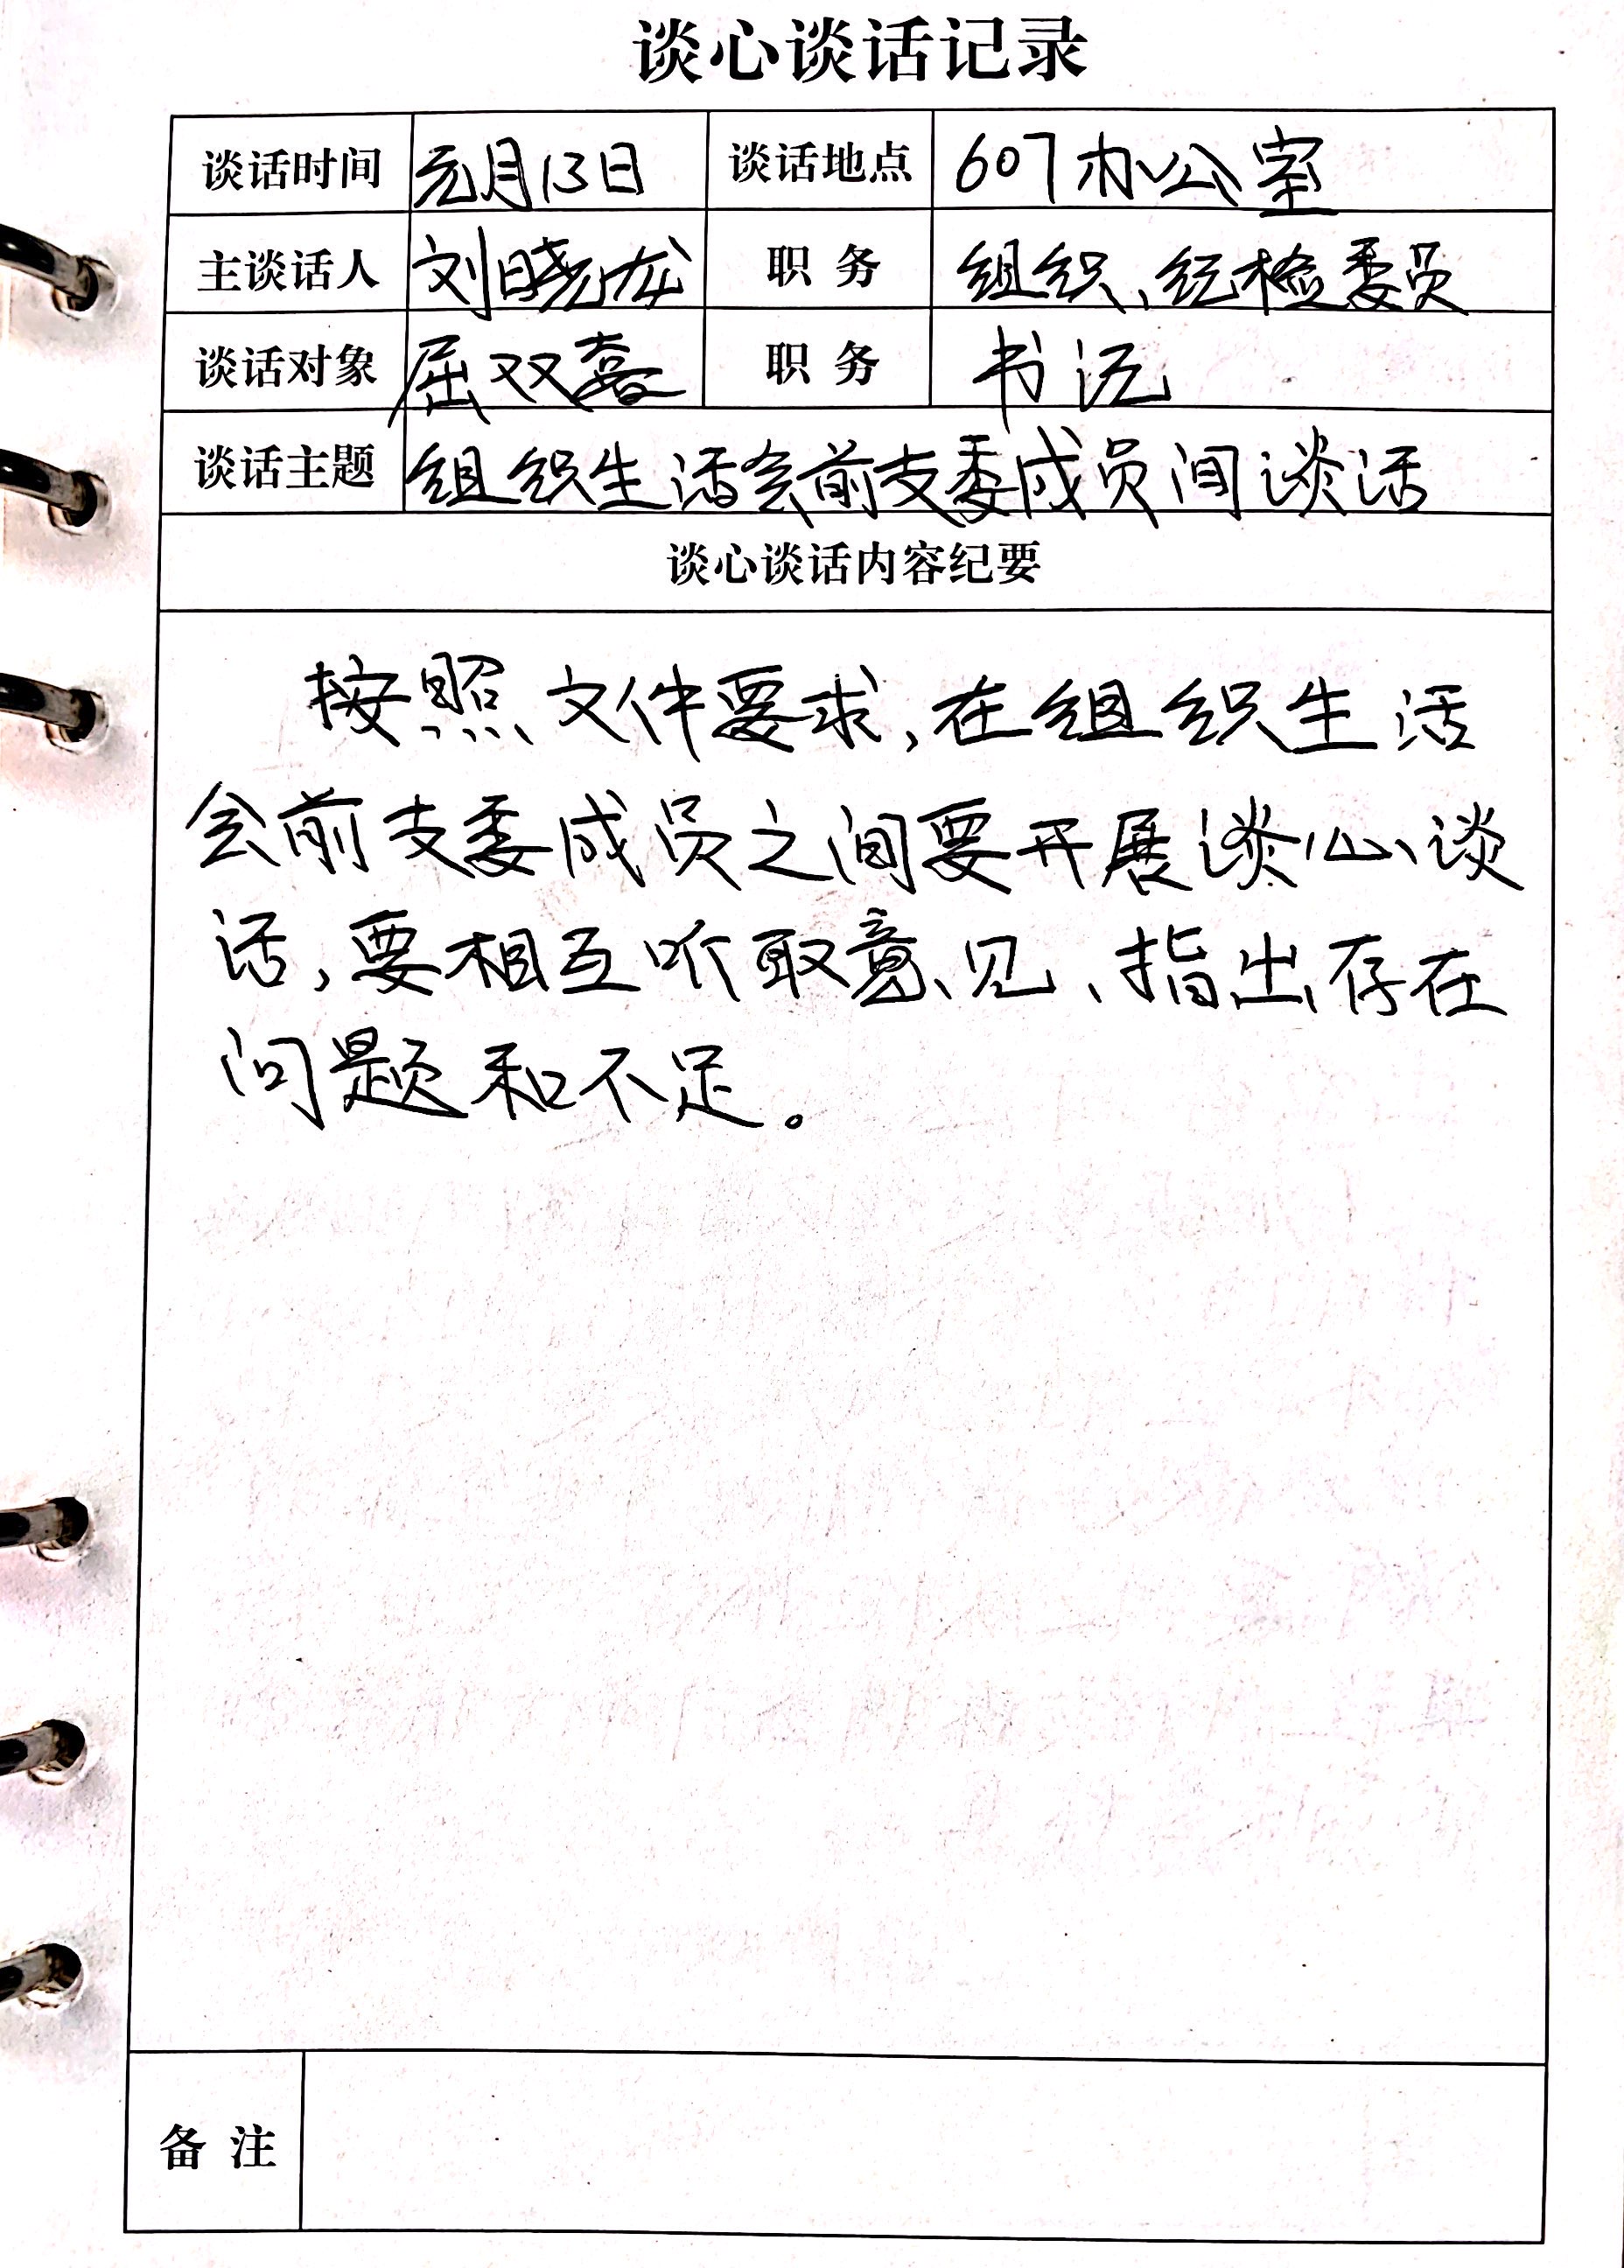 谈心谈话记录
谈话时间 元月13日 谈话地点 607办公室
主谈话人 刘晓龙 职务 组织、纪检委员
谈话对象 屈双喜 职务 书记
谈话主题 组织生活会前支委成员间谈话
谈心谈话内容纪要
按照文件要求,在组织生活
会前支委成员之间要开展谈心谈
话,要相互听取意见、指出存在
问题和不足。
备注